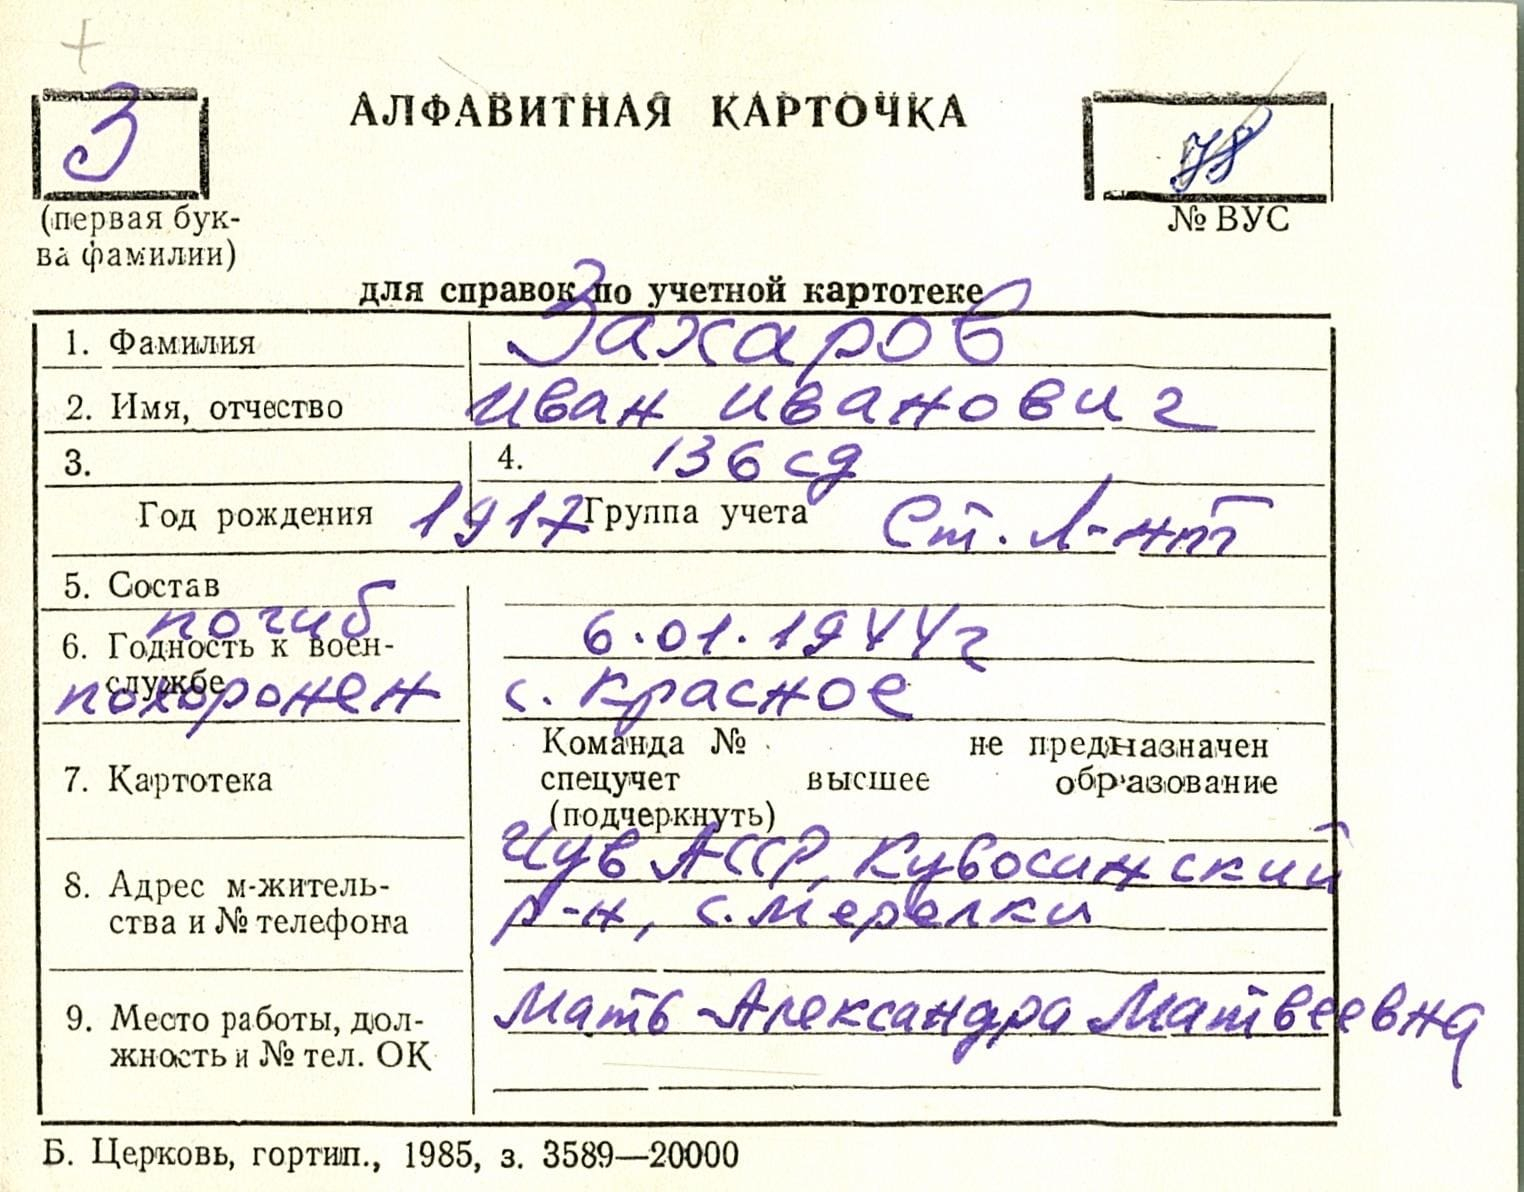 З
АЛФАВИТНАЯ КАРТОЧКА
78
(первая бук-
ва фамилии)
№ ВУС
для справок по учетной картотеке
1. Фамилия Захаров
2. Имя, отчество Иван Иванович
3. 4. 136 сд
Год рождения 1917 Группа учета Ст. л-нт
5. Состав
погиб 6.01.1944г
6. Годность к воен-
службе
похоронен с. Красное
Команда № не предназначен
7. Картотека спецучет высшее образование
(подчеркнуть)
Чув АССР, Кувосинский
8. Адрес м-житель-
ства и № телефона р-н, с. Мерелки
9. Место работы, дол- Мать - Александра Матвеевна
жность и № тел. ОК
Б. Церковь, гортип., 1985, з. 3589—20000